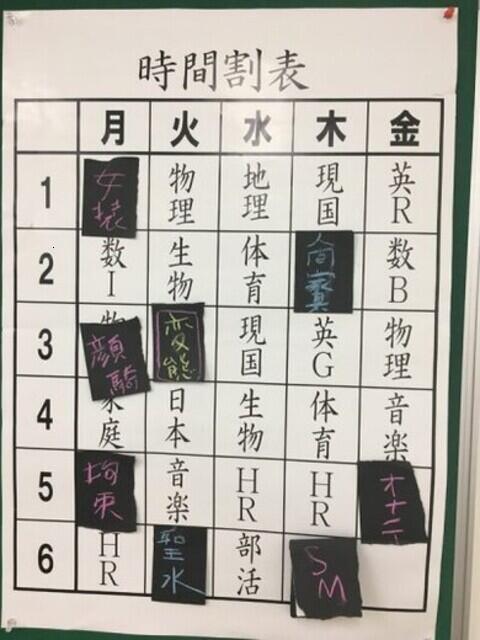 時間割表
月 火 水 木 金
1 女装 物理 地理 現国 英R
2 数I 生物 体育 視姦 数B
3 顔騎 変態 現国 英G 物理
4 家庭 日本 生物 体育 音楽
5 拘束 音楽 HR HR オナニー
6 HR 聖水 部活 SM